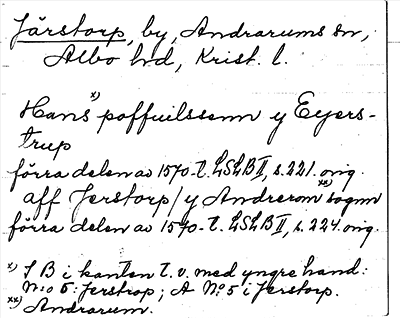 Järstorp, by, Andrarums sn,
Albo hd, Krist. l.
Hans x) poffuilssenn y Eyers-
trup
förra delen av 1570-t. LSLB II, s. 221. orig.
aff Jerstorp / y Andrerom xx) sognn
förra delen av 1570-t. LSLB II, s. 224. orig.
x) I B i kanten t. v. med yngre hand:
N:o 5: Jerstrop; A No 5 i Jerstorp.
xx) Andrarum.